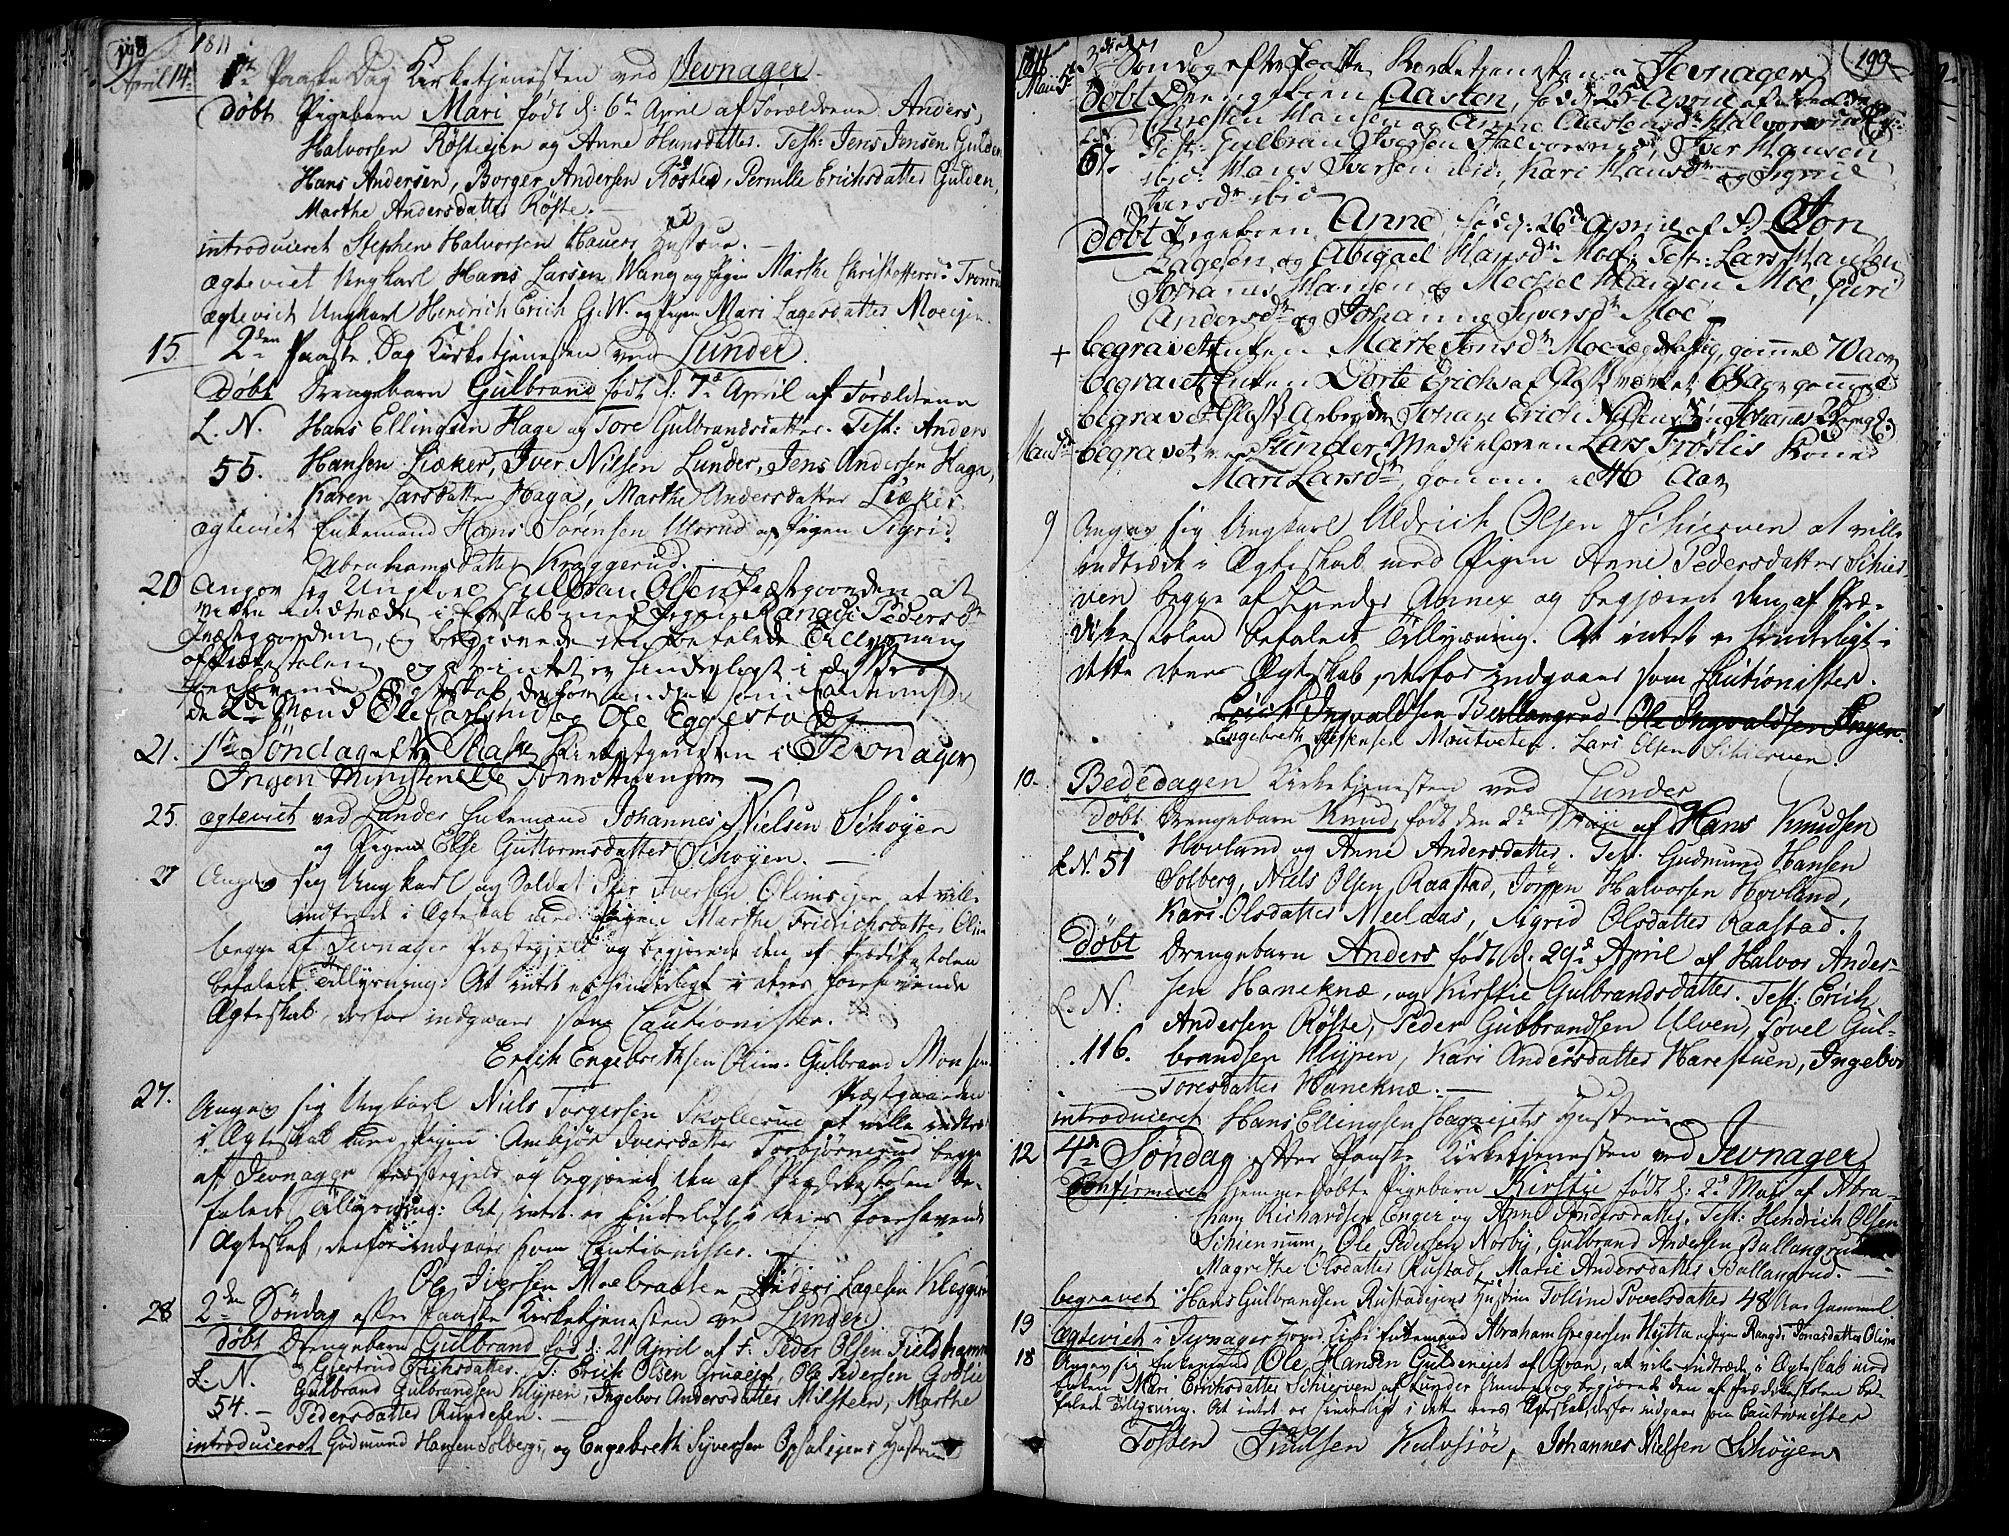 198
1811
April 14. 1te Paaske Dag Kirketjenesten ved Jevnager.
døbt Pigebarn Mari født d: 6te April af Forældrene Anders
Halvorsen Røsteejen og Anne Hansdatter. Test: Jens Jensen Gulden
Hans Andersen, Borger Andersen Røsted, Pernille Erichsdatter Gulden,
Marthe Andersdatter Røste.
introduceret Stephen Halvorsen Hauers Hustrue.
ægteviet Ungkarl Hans Larsen Wang og Pigen Marthe Christoffersd:
ægteviet Ungkarl Hendrich Erich G.W. og Pigen Mari Lagesdatter Moeejen.
15 2den Paaske Dag Kirketjenesten ved Lunder.
døbt Drengebarn Gulbrand født d: 7de April af Forældrene
L. N. Hans Ellingsen Hage og Tore Gulbrandsdatter. Test: Anders
55. Hansen Liæker, Iver Nilsen Lunder, Jens Andersen Haga,
Karen Larsdatter Haga, Marthe Andersdatter Liæker
ægteviet Enkemand Hans Sørensen Ulsrud og Pigen Sigrid
Abrahamsdatter Kraggerud.
20 Angav sig Ungkarl Gulbran Olsen Præstgaarden at
ville indtræde i Ægteskab med Pigen Rangdi Pedersdr
Præstgaarden, og begierede den befalede Tillysning
af Prækestolen, og at intet er hinderligt i dette deres
forehavende Ægteskab derfor indgaar som Cautionister
de 2de Mænd Ole Carlsrud og Ole Eggesta
21. 1te Søndag efter Paaske Kirketjenesten i Jevnager
Ingen Ministerielle Forretninger
25. ægteviet ved Lunder Enkemand Johannes Nielsen Schøyen
og Pigen Else Guttormsdatter Schøyen.
27 Angav sig Ungkarl og Soldat Peer Iversen Olimsejer at ville
indtræde i Ægteskab med Pigen Marthe Friderichsdatter Olim
begge af Jevnager Præstegjeld og begjærede den af Prædikestolen
befalede Tillysning: At intet er hinderligt i deres forehavende
Ægteskab, derfor indgaaer som Cautionister.
Erich Engebrethsen Olim. Gulbrand Monsen
Præstgaarden
27. Angav sig Ungkarl Niels Torgersen Skollerud at ville indtræde
i Ægteskab med Pigen Ambjør Iversdatter Torbjørnsrud begge
af Jevnager Præstegjeld og begjærede den af Prædikestolen be-
falede Tillysning: At intet er hinderligt i deres forehavende
Ægteskab, derfor indgaaer som Cautionister.
Ole Iversen Moebraaten Anders Lagesen Kleggerud
28 2den Søndag efter Paaske Kirketjenesten ved Lunder
døbt Drengebarn Gulbrand fød d: 21 April af F: Peder Olsen Fieldhammer
L. N. og Giertrud Erichsdatter. T: Erich Olsen Gruaejet, Ole Pedersen Godlie
54. Gulbrand Gulbrandsen Klypen, Ingebor Andersdatter Milsteen, Marthe
Pedersdatter Rundelen.
introduceret Gudmund Hansen Solbergs, og Engebreth Syversen Opsalejens Hustruer
199
1811 3die Søndag efter Paaske Kirketjenesten i Jevnager
Mai 5te døbt Drengebarn Aasten, fød d: 25de April af Forældrene
Christen Hansen og Anne Aastensdr Halvorsrud
67. Test: Gulbran Iversen Halvorsrud, Iver Hansen
ibid: Hans Iversen ibid: Kari Hansdr og Sigrie
Iversdr ibid
døbt Pigeboen Anne, fød d: 26de April af F: Jon
Lagesen og Abigael Hansdr Moe, Test: Lars Hansen
Johannes Hansen og Mechiel Hansen Moe, Guri
Andersdr og Johanne Syversdr Moe
+ begravet Enken Marte Jonsdr Moe Lægdslastig, gammel 70 aar
begravet Enken Dorte Erichs af Glasværket 68 aar gammel
begravet Glass Arbeyder Johan Erich Nilsens Søn Johanes
begravet ved Lunder Medhielperen Lars Trøslis Kone
Mari Larsdr, gammel 46 Aar
9 Angav sig Ungkarl Aldrich Olsen Schierven at ville
indtræde i Ægteskab med Pigen Anne Pedersdatter Schier-
ven begge af Lunder Annex og begjæret den af Præ-
dikestolen befalede Tillysning. At intet er hinderligt i
dette deres Ægteskab, derfor indgaaer som Cautionister.
Erich Ingvaldsen Ballangrud Ole Ingvaldsen Enger.
Engebreth Steffensen Moutveten. Lars Olsen Schierven.
10. Bededagen Kirketjenesten ved Lunder
døbt Drengebarn Knud, født den 2den Maji af Hans Knudsen
L.N. 51 Hovland og Anne Andersdatter. Test. Gudmund Hansen
Solberg, Niels Olsen Raastad, Jørgen Halvorsen Hovland,
Kari Olsdatter Meelaas, Sigrid Olsdatter Raastad.
døbt Drengebarn Anders født d: 29de April af Halvor Ander-
L. N. sen Haneknæ, og Kirstie Gulbrandsdatter. Test: Erich
Andersen Røste, Peder Gulbrandsen Ulven, Povel Gul-
116. brandsen Klypen, Kari Andersdatter Harestuen, Ingebor
Toresdatter Haneknæ.
introduceret Hans Ellingsen Hagaejets Hustrue
12 4de Søndag efter Paaske Kirketjenesten ved Jevnager
Confirmeret hjemme døbte Pigebarn Kirstie født d: 2de Maji af Abra-
ham Richardsen Enger og Anne Andersdatter. Test: Hendrich Olsen
Schiennum, Ole Pedersen Norby, Gulbrand Andersen Ballangrud
Magrethe Olsdatter Rustad, Marie Andersdatter Ballangrud.
begravet Hans Gulbrandsen Rustadejens Hustrue Tolline Povelsdatter 48 Aar Gammel
19 ægteviet i Jevnager Enkemand Abraham Gregersen Hytta og Pigen Rangdi Jonasdatter Olim
18 Angav sig Enkemand Ole Hansen Guldenejet af Gran, at ville Indtræde i Ægteskab med
Enken Mari Erichsdatter Schierven af Lunder Annex og begjærede den af Prædikestolen be-
falede Tillysning. At intet er hinderligt i dette deres Ægteskab, derfor indgaaer som Cautionister
Tosten Knudsen Kalvsjøe, Johannes Nielsen Schøyen